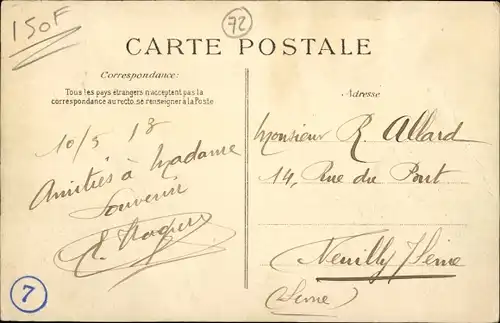 150F
72
CARTE POSTALE
Correspondance:
Tous les pays étrangers n'acceptent pas la
correspondance au recto, se renseigner à la Poste
10/5 13
Amitiés à Madame
Souvenir
Adresse
Monsieur R. Allard
14, Rue du Pont
Neuilly s/ Seine
(Seine)
7